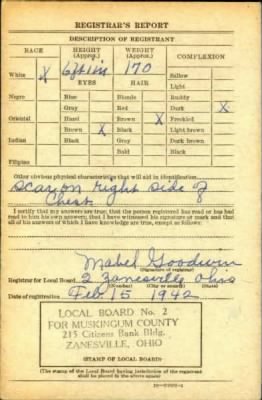 REGISTRAR'S REPORT
DESCRIPTION OF REGISTRANT
RACE HEIGHT (Approx.) WEIGHT (Approx.) COMPLEXION
White X 6ft 1in 170 Sallow
EYES HAIR Light
Negro Blue Blonde Ruddy
Gray Red Dark X
Oriental Hazel Brown X Freckled
Brown X Black Light brown
Indian Black Gray Dark brown
Bald Black
Filipino
Other obvious physical characteristics that will aid in identification
Scar on right side of
Chest
I certify that my answers are true; that the person registered has read or has had
read to him his own answers; that I have witnessed his signature or mark and that
all of his answers of which I have knowledge are true, except as follows:
Mabel Goodwin
(Signature of registrar)
Registrar for Local Board 2 Zanesville Ohio
(Number) (City or county) (State)
Date of registration Feb 15 1942
LOCAL BOARD No. 2
FOR MUSKINGUM COUNTY
215 Citizens Bank Bldg.
ZANESVILLE, OHIO
(STAMP OF LOCAL BOARD)
(The stamp of the Local Board having jurisdiction of the registrant
shall be placed in the above space)